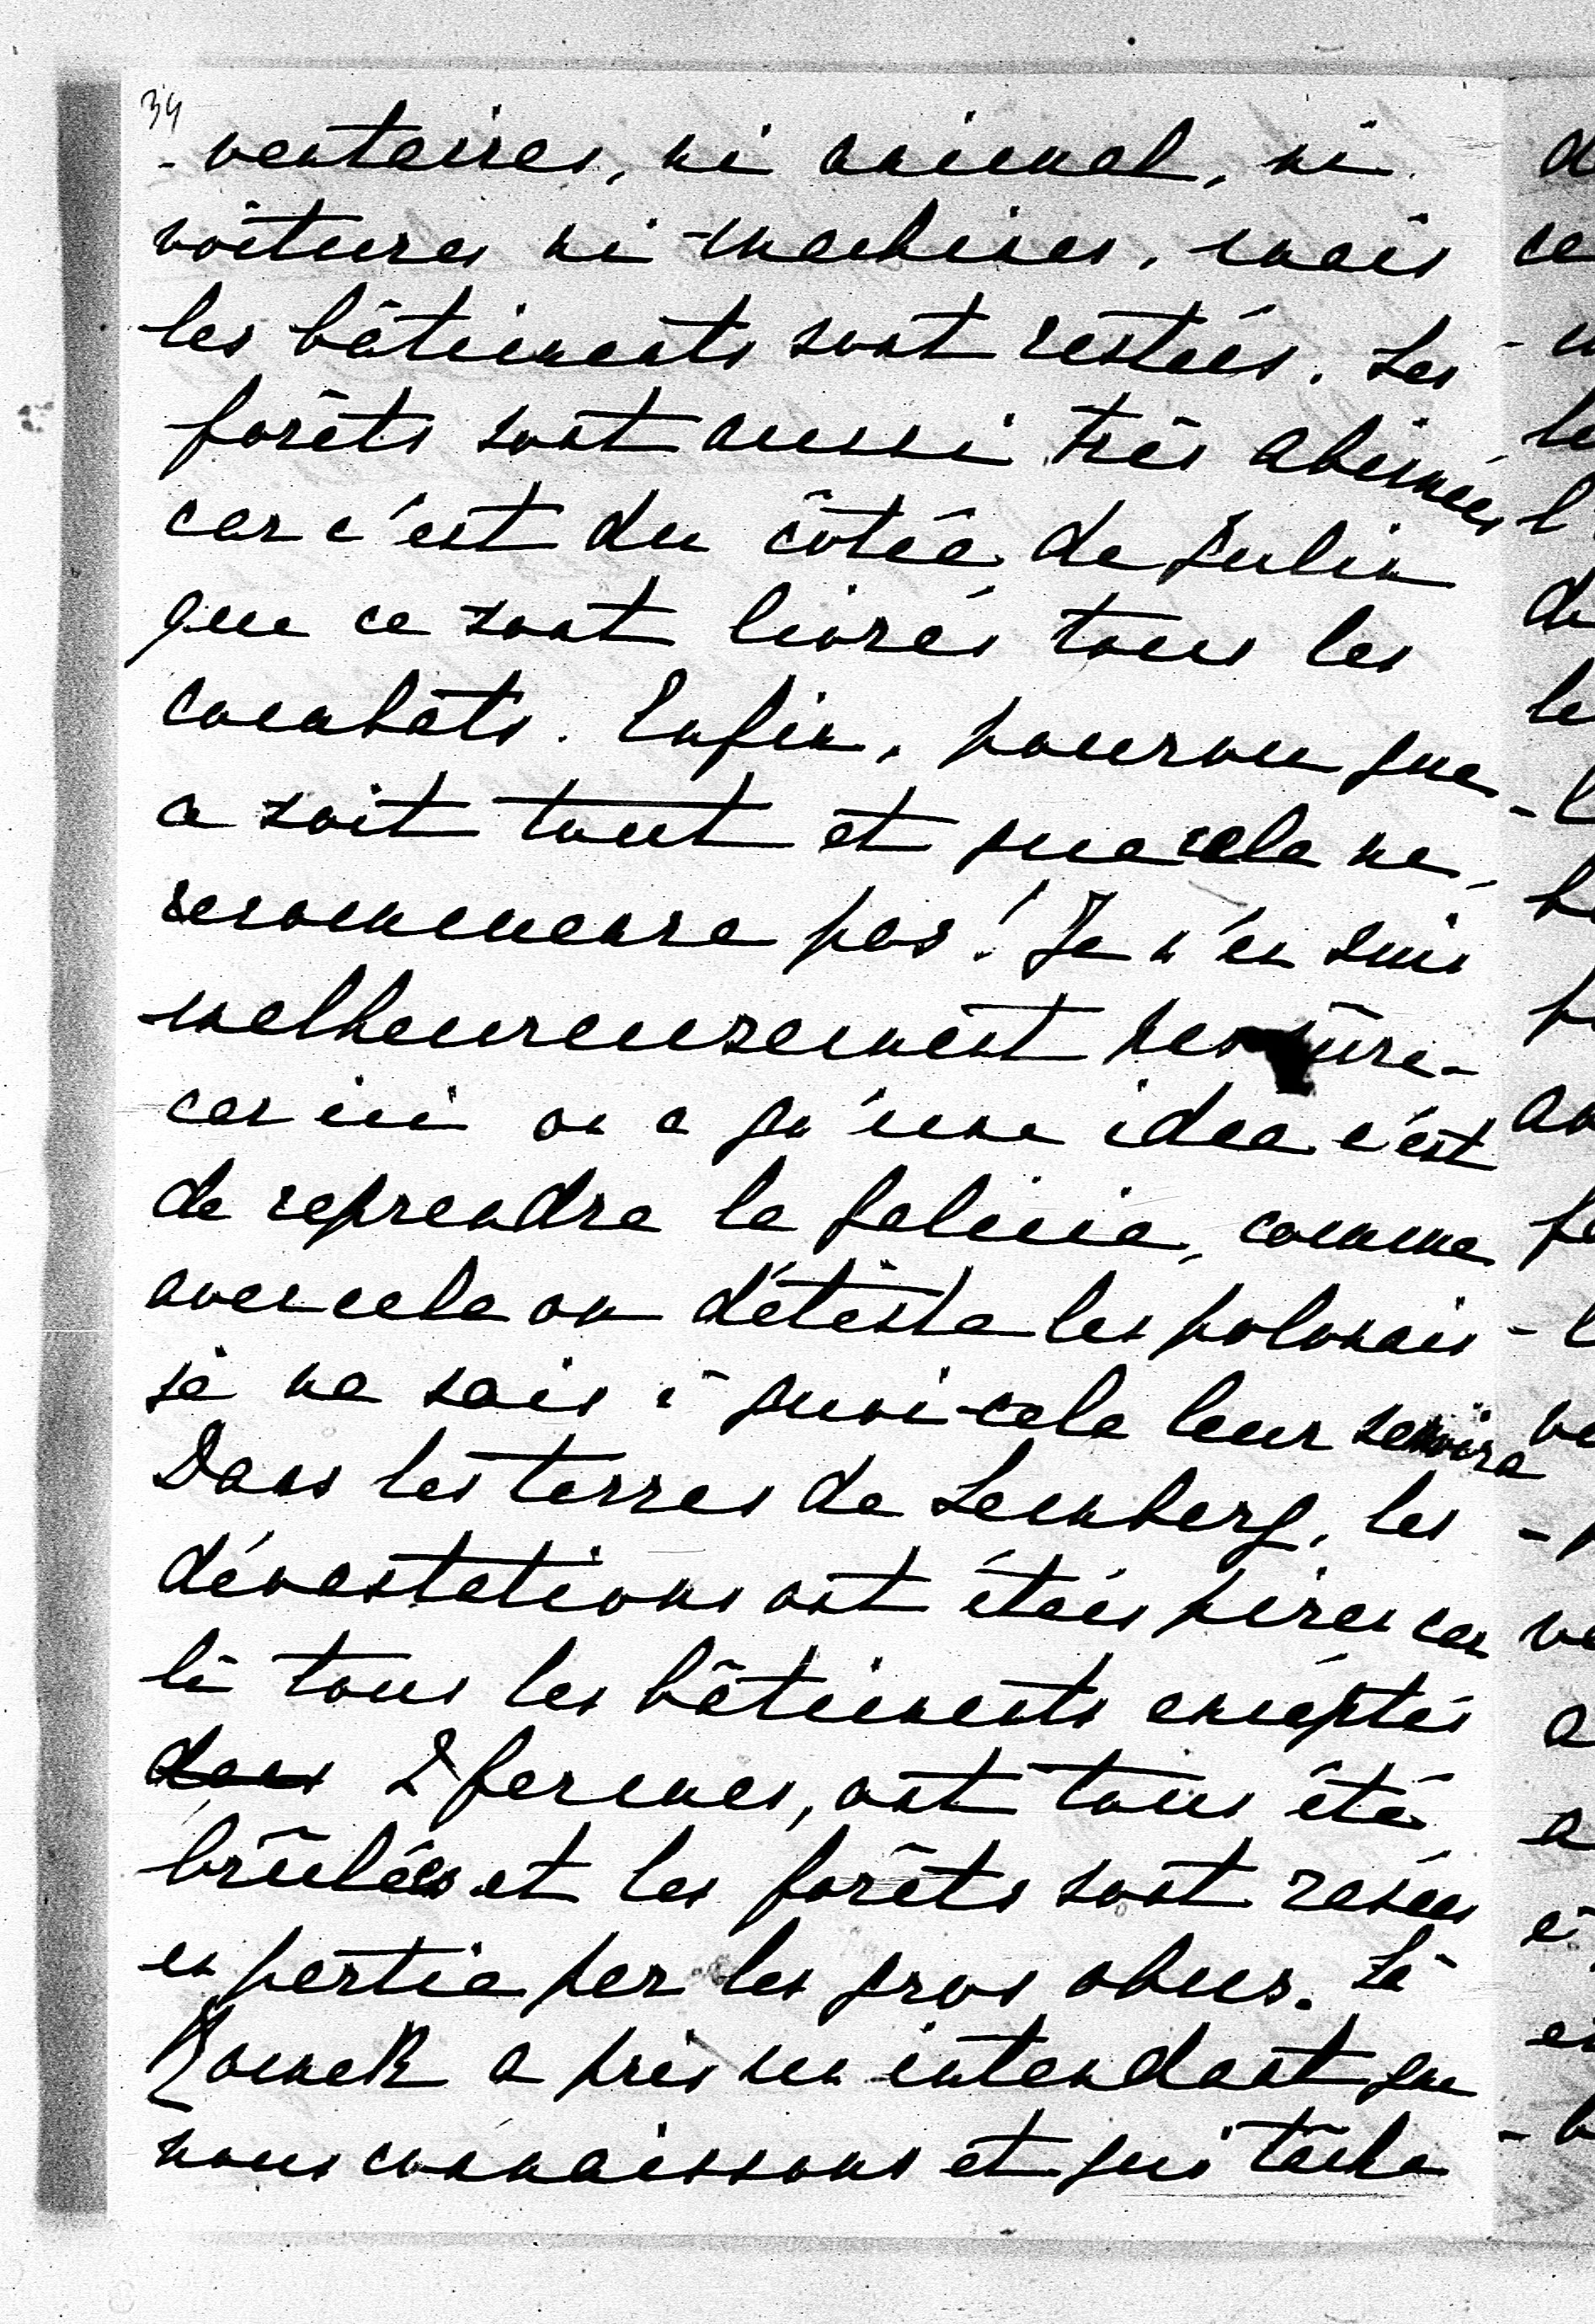 34
-ventaires, ni animal, ni
voitures ni machines, mais
les bâtiments sont restées. Les
forêts sont aussi très abimées
car c'est du côtée de Julin
que ce sont livrés tous les
combâts. Enfin, pourvu que
ce soit tout et que cela ne
recommence pas! Je n'en suis
malheureusement pas sûre-
car ici on a qu'une idee c'est
de reprendre la Galicie, comme
avec cela on déteste les polonais
je ne sais à quoi cela leur servira
Dans les terres de Lemberg, les
dévastations ont étées pires car
là tous les bâtiments exceptés
dans 2 fermes, ont tous été
brûlées et les forêts sont rasées
en partie par les gros obus. Là
Romek a pris un intendant que
nous connaissons et qui tâche